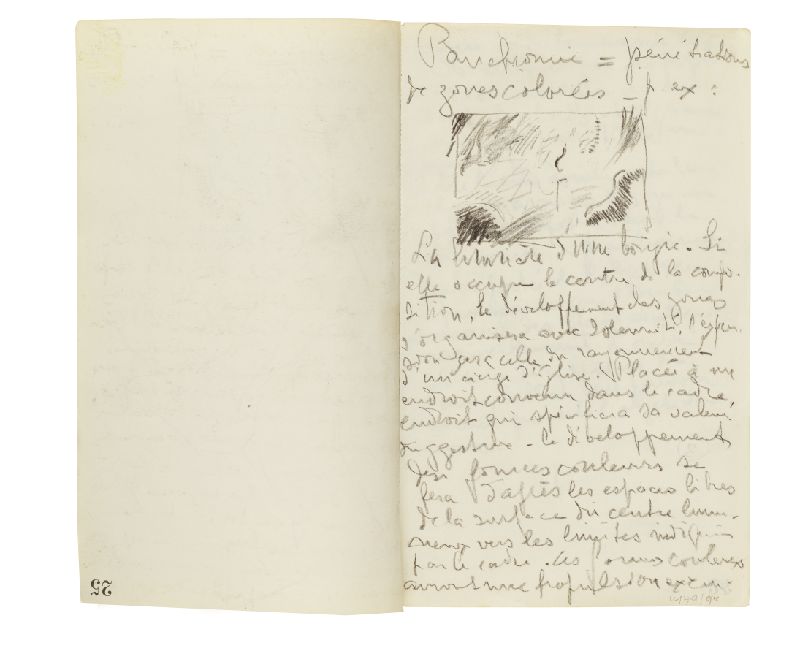 Panchromie = pénétrations
de zones colorées - p. ex :
La luminaire d'une bougie. Si
elle occupe le centre de la compo-
sition, le développement des zones
s'organisera avec solennité, l'expan-
sion sera celle du rayonnement
d'un cierge d'église. Placée à un
endroit convenu dans le cadre,
endroit qui spécifiera sa valeur
suggestive - le développement
des formes couleurs se
fera d'après les espaces libres
de la surface du centre lumi-
neux vers les limites indiquées
par le cadre. Les formes couleurs
auront une propulsion
25